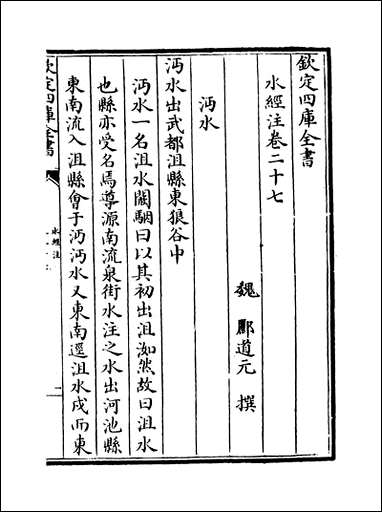 欽定四庫全書
水經注卷二十七
魏 酈道元 撰
沔水
沔水出武都沮縣東狼谷中
沔水一名沮水闞駰曰以其初出沮洳然故曰沮水
也縣亦受名焉導源南流泉街水注之水出河池縣
東南流入沮縣會于沔沔水又東南逕沮水戍而東
欽定四庫全書
水經注